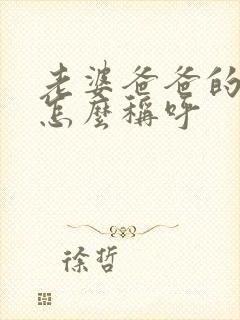 老婆爸爸的
怎麼稱呼
徐哲